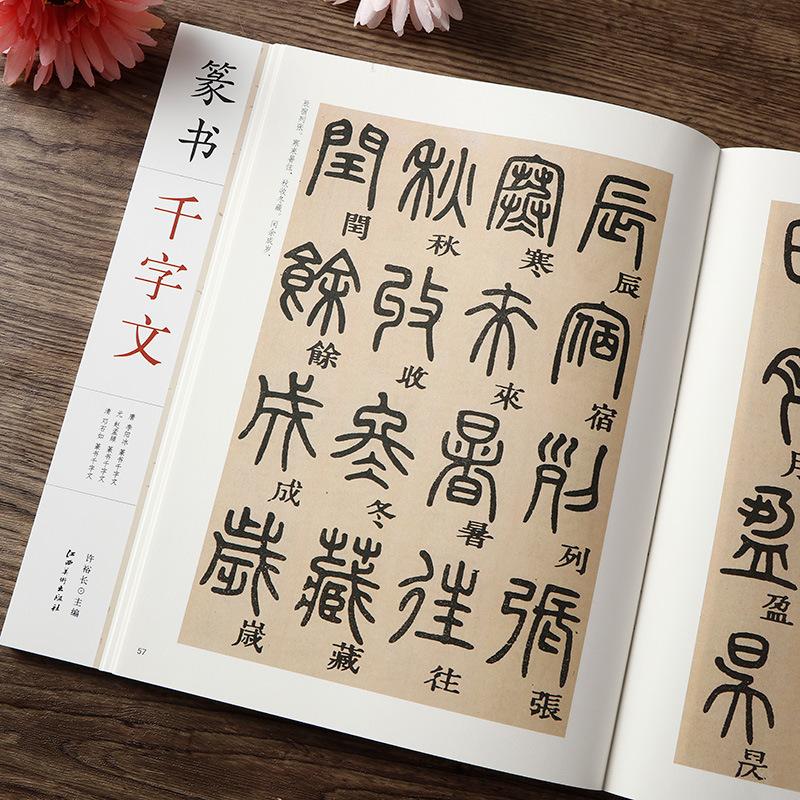 篆书
千字文
唐 李阳冰 篆书千字文
元 赵孟頫 篆书千字文
清 邓石如 篆书千字文
许裕长⊙主编
江西美术出版社
辰宿列张，寒来暑往，秋收冬藏，闰余成岁，
辰宿列張
辰宿列張
寒來暑往
寒來暑往
秋收冬藏
秋收冬藏
閏餘成歲
閏餘成歲
57
月盈昃
月盈昃